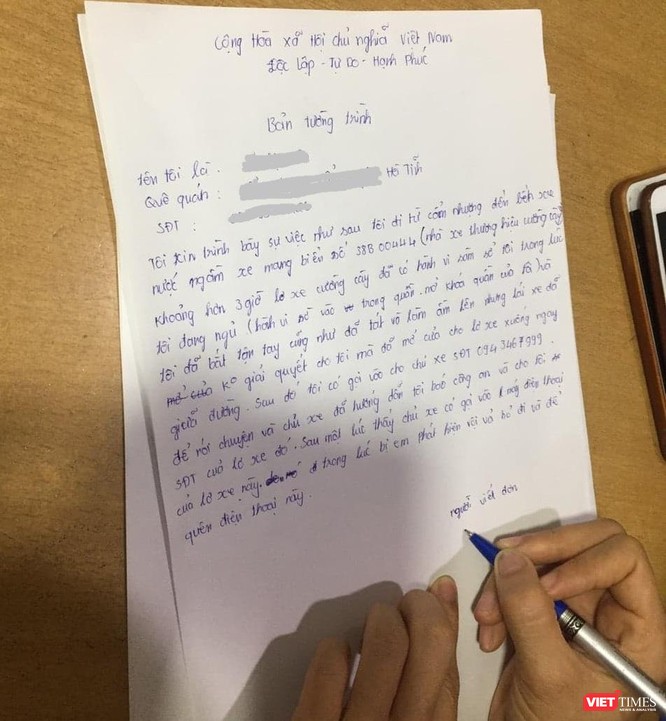 Cộng Hòa xã Hội chủ nghĩa Việt Nam
Độc Lập - Tự Do - Hạnh Phúc
Bản tường trình
Tên tôi là :
Quê quán : Hà Tĩnh
SĐT :
Tôi xin trình bày sự việc như sau tôi đi từ cẩm nhượng đến bến xe
nước ngầm xe mang biển số 38B 00444 (nhà xe thương hiệu cường cây)
Khoảng hơn 3 giờ lơ xe cường cây đã có hành vi sàm sở tôi trong lúc
tôi đang ngủ (hành vi sờ vào trong quần. mở khóa quần của tôi) và
tôi đã bắt tận tay cũng như đã tát và làm ầm lên nhưng lái xe đã
ko giải quyết cho tôi mà đã mở cửa cho lơ xe xuống ngay
giữa đường. Sau đó tôi có gọi vào cho chủ xe SĐT 0943467999.
để nói chuyện và chủ xe đã hướng dẫn tôi báo công an và cho tôi
SĐT của lơ xe đó. Sau một lúc thấy chủ xe có gọi vào 1 máy điện thoại
của lơ xe này. trong lúc bị em phát hiện vội vã bỏ đi và để
quên điện thoại này.
người viết đơn
VIETTIMES
NEWS & ANALYSIS